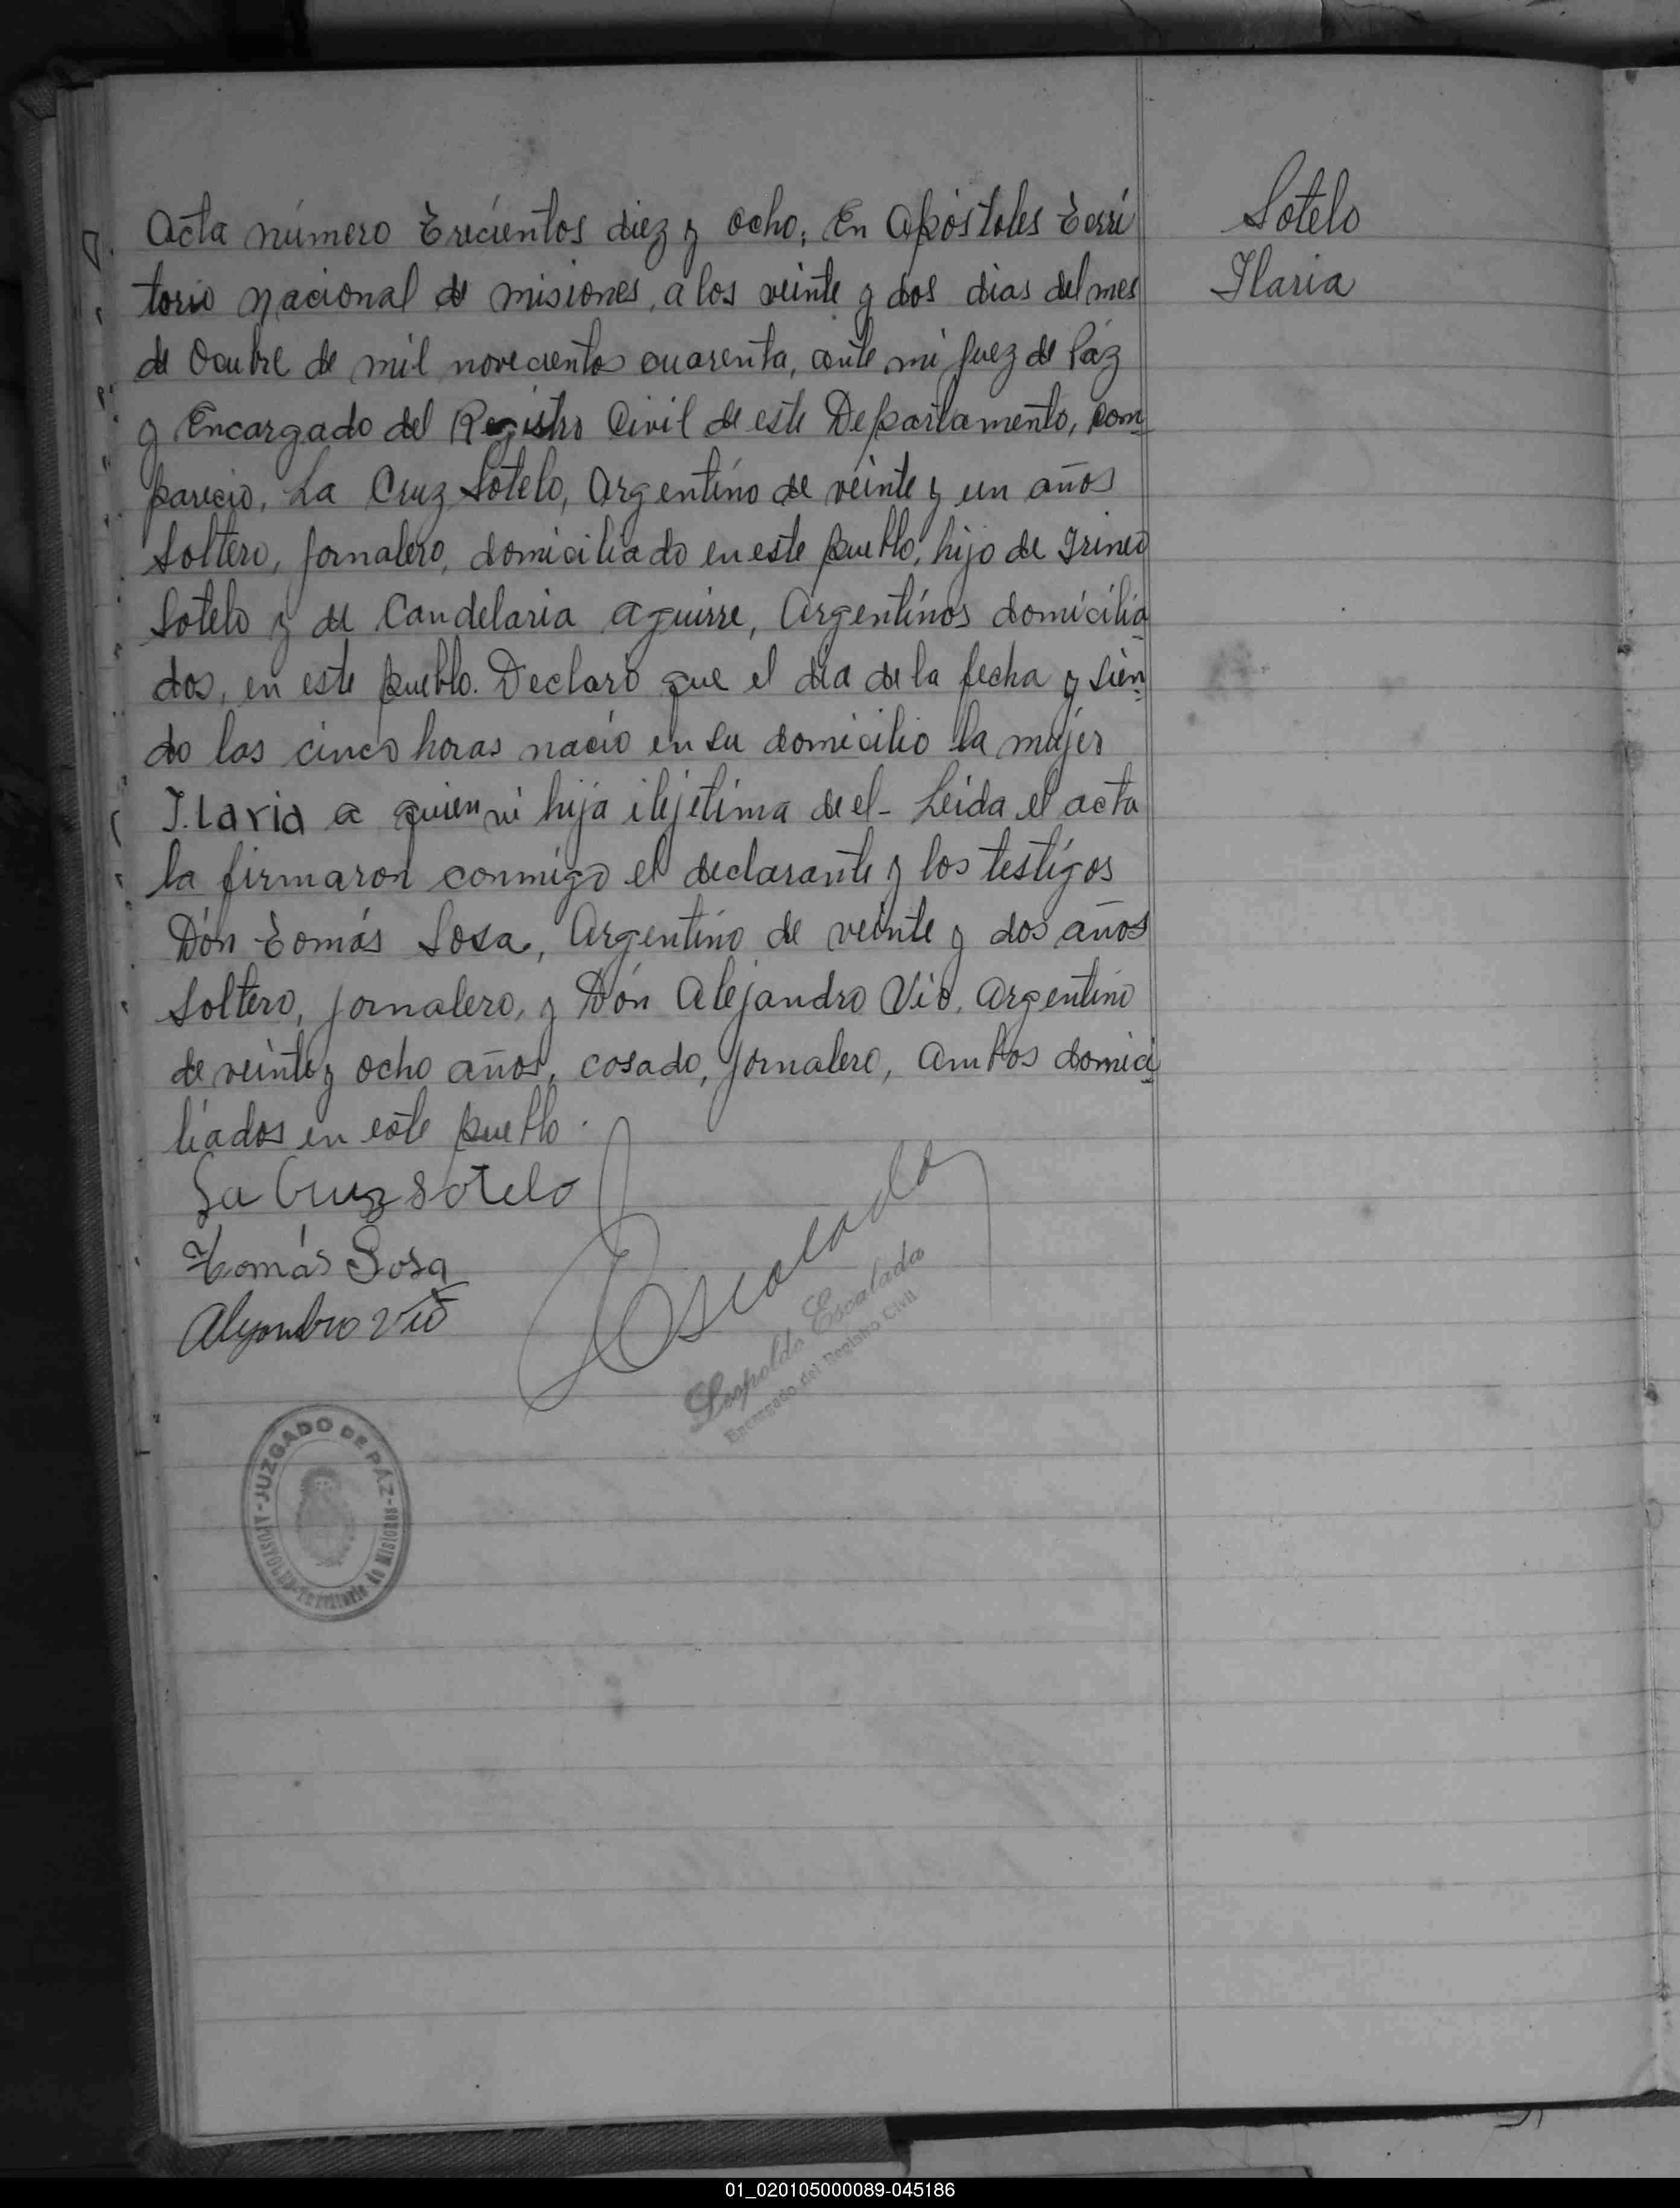 Sotelo
Ilaria
Acta número Trecientos diez y ocho, En Apóstoles Terri
torio Nacional de misiones, a los veinte y dos dias del mes
de Ocubre de mil novecientos cuarenta, ante mi Juez de Páz
y Encargado del Registro Civil de este Departamento, com
parecio, La Cruz Sotelo, Argentino de veinte y un años
Soltero, Jornalero, domiciliado en este pueblo, hijo de Irineo
Sotelo y de Candelaria Aguirre, Argentinos domicilia
dos, en este pueblo. Declaro que el dia de la fecha y sien
do las cinco horas nacio en su domicilio la mujer
I.laria a quien vi hija ilejetima de el - Leida el acta
la firmaron conmigo el declarante y los testigos
Dón Tomás Sosa, Argentino de veinte y dos años
Soltero, Jornalero, y Dón Alejandro Vio, Argentino
de veinte y ocho años, casado, Jornalero, Ambos domici
liados en este pueblo.
La Cruz Sotelo
Tomás Sosa
Alejandro Vio
Escalada
Leopoldo Escalada
Encargado del Registro Civil
JUZGADO DE PÁZ
APOSTOLES-Territorio de Misiones
01_020105000089-045186